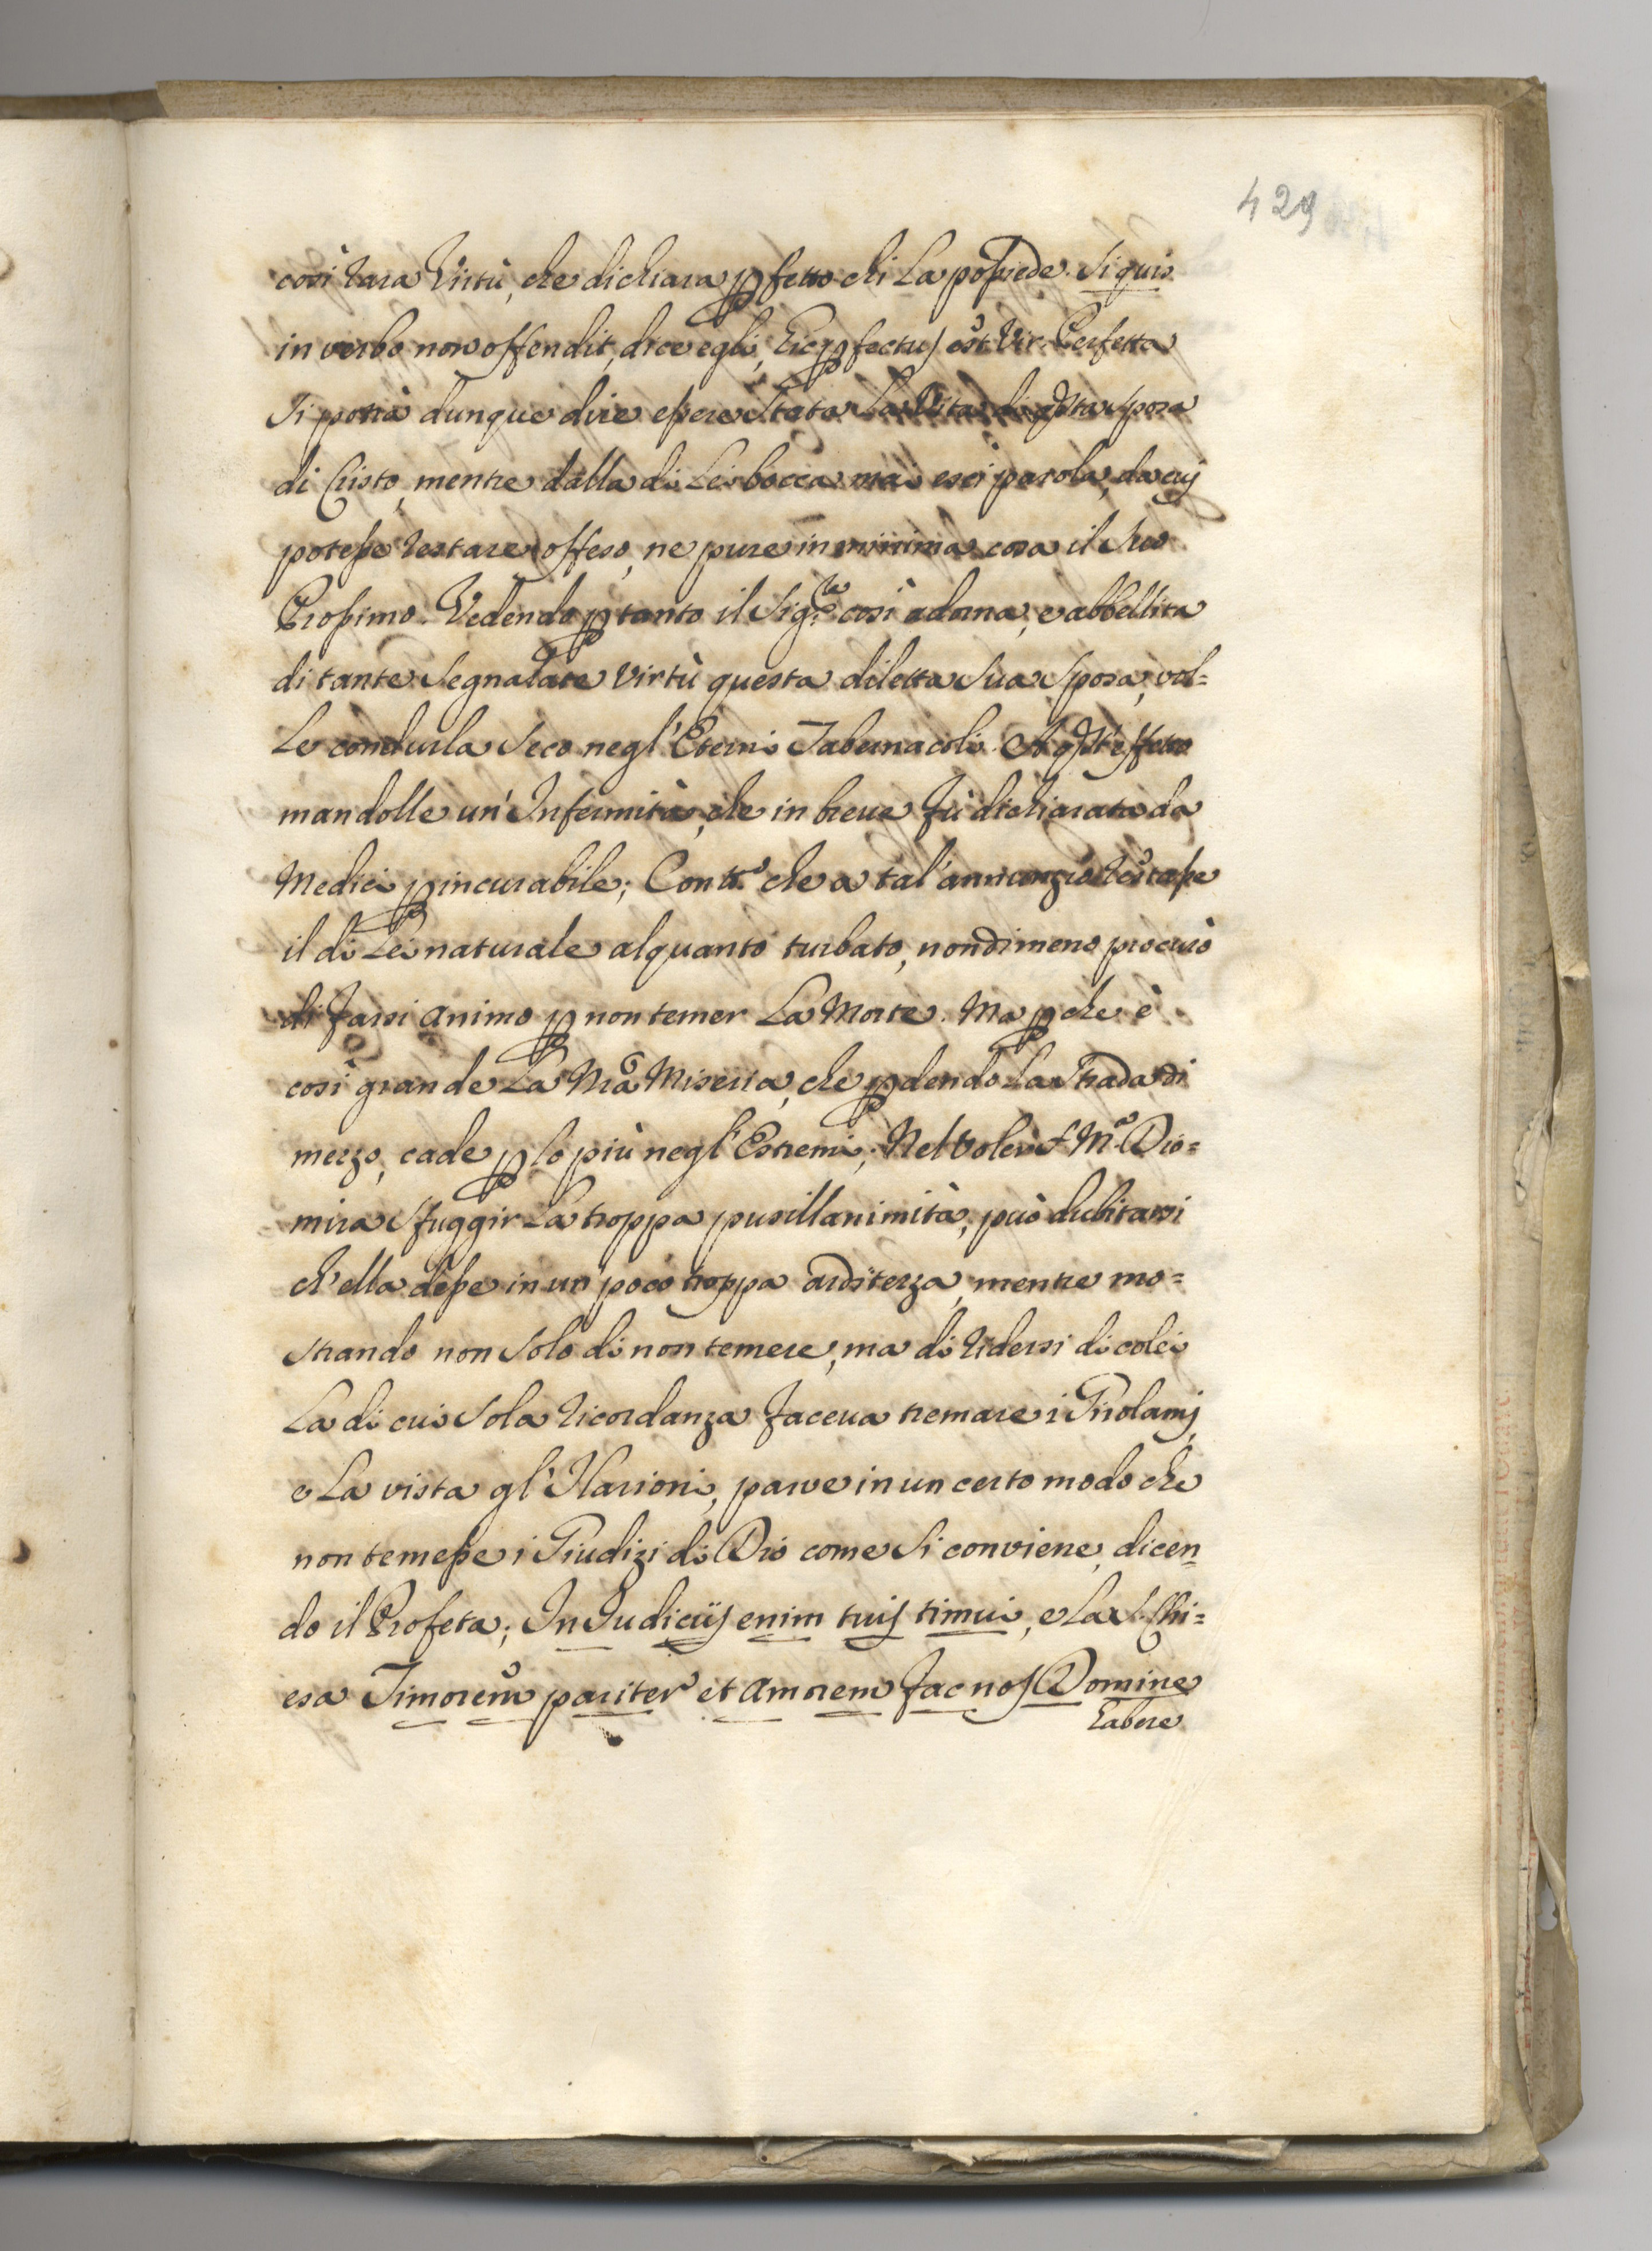 429
così rara Virtù, che dichiara pfetto chi La possiede. Si quis
in verbo non offendit, dice egli, hic pfectus est Vir. Perfetta
Si potrà dunque dire essere stata La Vita di qsta Sposa
di Cristo, mentre dalla di Lei bocca mai esci parola, da cuj
potesse restare offeso, ne pure in minima cosa il suo
Prossimo. Vedendo ptanto il Sig.re così adorna, e abbellita
di tante Segnalate virtù questa diletta Sua Sposa, vol=
Le condurla Seco negl'Eterni Tabernacoli. A qst'effetto
mandolle un'Infermità, che in breue fù dichiarata da
Medici pincurabile; Contt.o che a tal'annunzio restasse
il di Lei naturale alquanto turbato, nondimeno procurò
di farsi animo p non temer La Morte. Ma pche è
così grande La Nra Miseria, che pdendo La Strada di
mezzo, cade p lo più negl'Estremi; Nel Voler S. M.a Dio=
mira sfuggir La troppa pusillanimità, può dubitarsi
ch'ella desse in un poco troppa arditezza, mentre mo=
strando non Solo di non temere, ma di ridersi di colei
La di cui Sola ricordanza faceua tremare i Girolamj,
e La vista gl'Ilarioni, parve in un certo modo che
non temesse i Giudizi di Dio come Si conviene, dicen=
do il Profeta; In Iudicijs enim tuis timui, e La S. Chi=
esa Timorem pariter et amorem fac nos Domine
habere